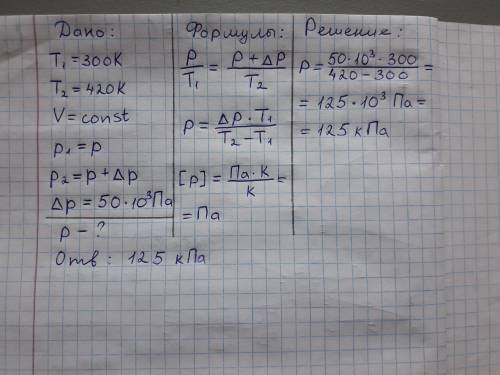 Дано:
T₁ = 300К
T₂ = 420К
V = const
p₁ = p
p₂ = p + Δp
Δp = 50·10³Па
p - ?
Отв: 125 кПа
Формулы:
P/T₁ = (P + ΔP)/T₂
P = (ΔP · T₁)/(T₂ - T₁)
[p] = (Па·К)/К =
= Па
Решение:
P = (50·10³·300)/(420 - 300) =
= 125·10³ Па =
= 125 кПа